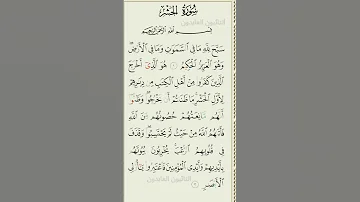 سُورَةُ الحَشْرِ
بِسْمِ اللَّهِ الرَّحْمَٰنِ الرَّحِيمِ
سَبَّحَ لِلَّهِ مَا فِي السَّمَٰوَٰتِ وَمَا فِي الْأَرْضِ
وَهُوَ الْعَزِيزُ الْحَكِيمُ ۝ هُوَ الَّذِي أَخْرَجَ
الَّذِينَ كَفَرُوا مِنْ أَهْلِ الْكِتَٰبِ مِن دِيَٰرِهِمْ
لِأَوَّلِ الْحَشْرِ مَا ظَنَنتُمْ أَن يَخْرُجُوا وَظَنُّوا
أَنَّهُم مَّانِعَتُهُمْ حُصُونُهُم مِّنَ اللَّهِ
فَأَتَىٰهُمُ اللَّهُ مِنْ حَيْثُ لَمْ يَحْتَسِبُوا وَقَذَفَ
فِي قُلُوبِهِمُ الرُّعْبَ يُخْرِبُونَ بُيُوتَهُم
بِأَيْدِيهِمْ وَأَيْدِي الْمُؤْمِنِينَ فَاعْتَبِرُوا يَٰأُولِي
الْأَبْصَٰرِ ۝